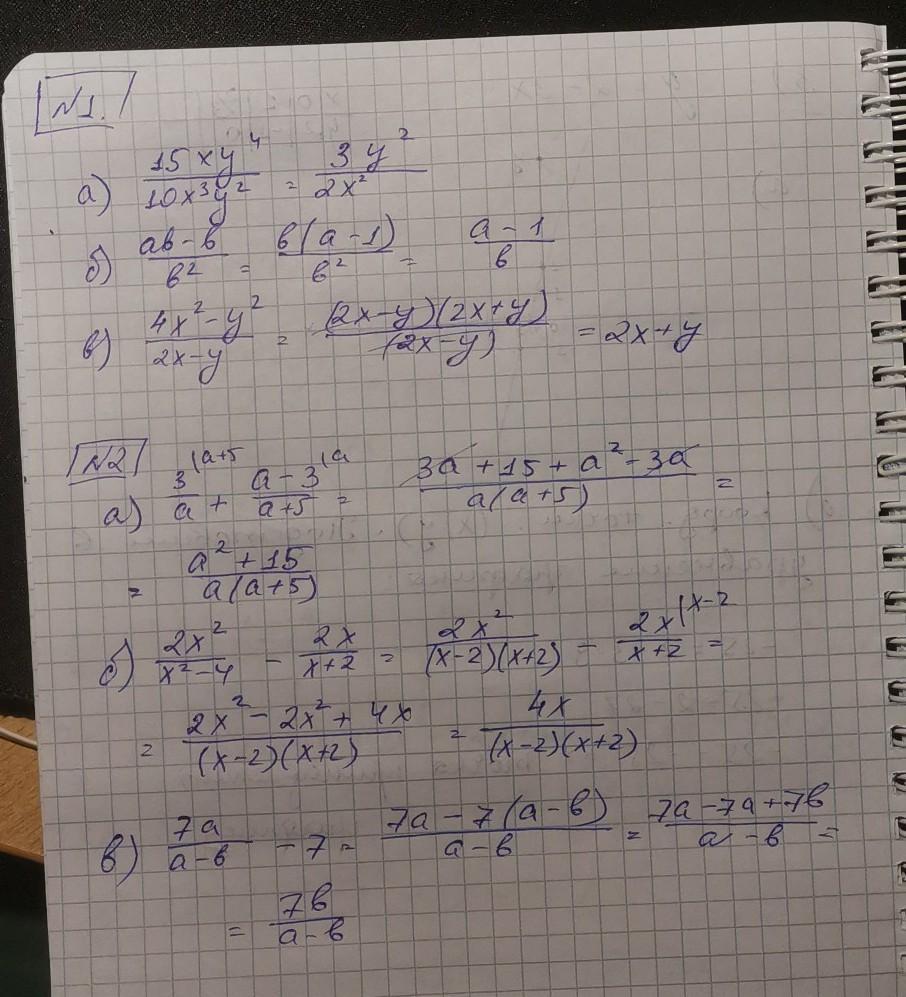 N1.
а) 15xy⁴/10x³y² = 3y²/2x²
б) (ab-b)/b² = b(a-1)/b² = (a-1)/b
в) (4x²-y²)/(2x-y) = (2x-y)(2x+y)/(2x-y) = 2x+y
N2
а) 3/a ⁽ᵃ⁺⁵ + (a-3)/(a+5) ⁽ᵃ = (3a+15+a²-3a)/(a(a+5)) =
= (a²+15)/(a(a+5))
б) 2x²/(x²-4) - 2x/(x+2) = 2x²/((x-2)(x+2)) - 2x/(x+2) ⁽ˣ⁻² =
= (2x²-2x²+4x)/((x-2)(x+2)) = 4x/((x-2)(x+2))
в) 7a/(a-b) - 7 = (7a-7(a-b))/(a-b) = (7a-7a+7b)/(a-b) =
= 7b/(a-b)